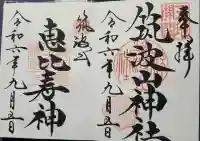 奉拝
筑波山神社
令和六年九月五日
筑波山
恵比寿神
令和六年九月五日